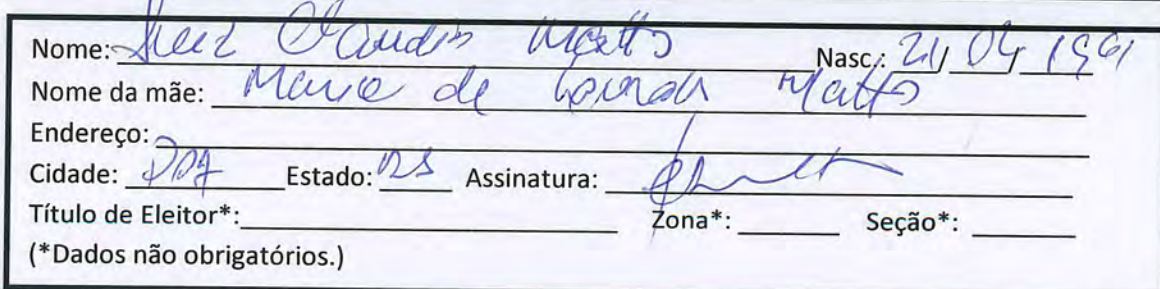 Nome: Luiz Claudio Mattos Nasc.: 21/ 04 / 1961
Nome da mãe: Maria de Lourdes Mattos
Endereço:
Cidade: POA Estado: RS Assinatura:
Título de Eleitor*: Zona*: Seção*:
(*Dados não obrigatórios.)